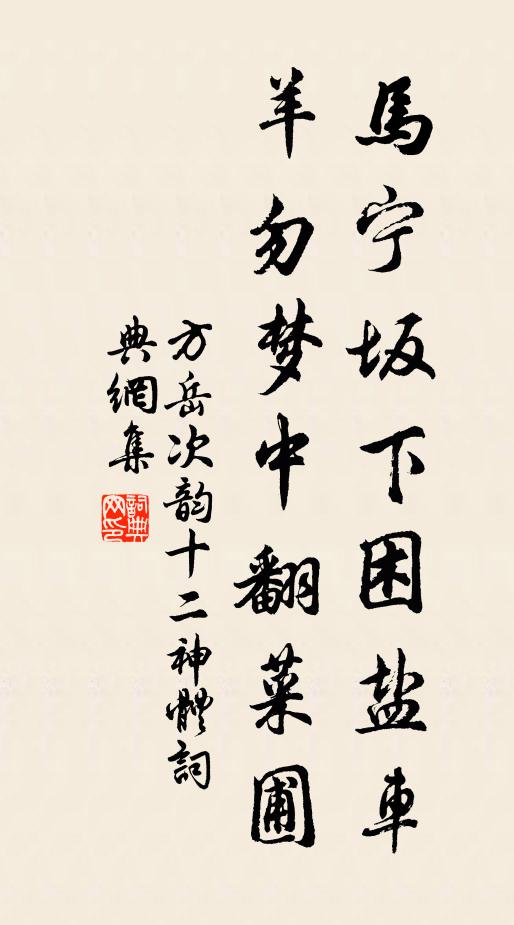 馬宁坂下困盐車
羊勿梦中翻菜圃
方岳次韵十二神體詞
典網集
詞典網印